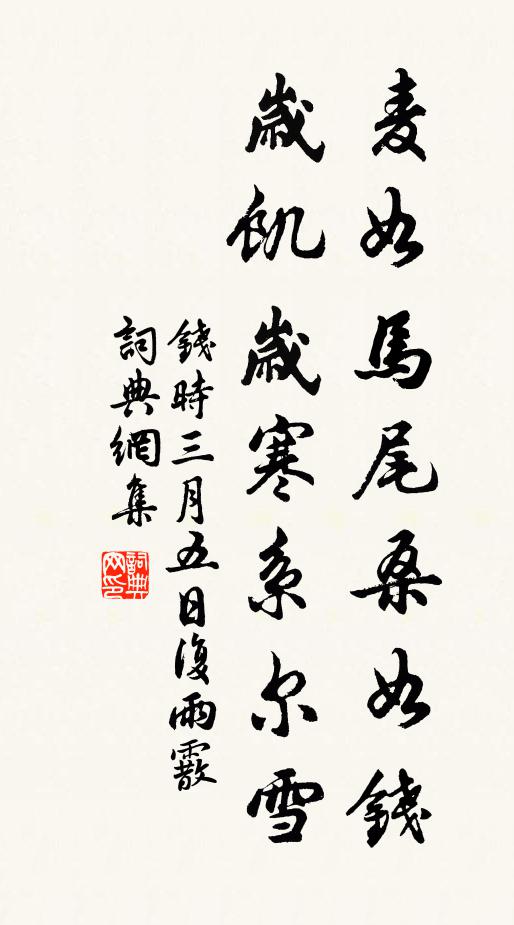 麦如馬尾桑如錢
歲飢歲寒系尔雪
錢時三月五日復雨霰
詞典網集
詞典网印